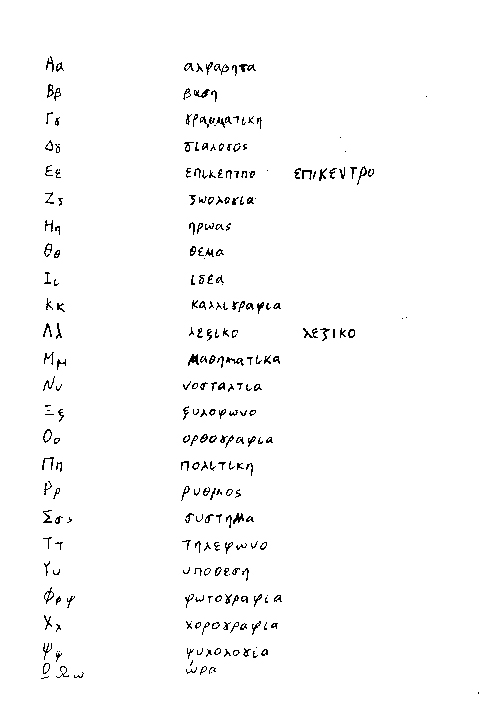 Αα αλφαβητα
Ββ βαση
Γγ γραμματικη
Δδ διαλογος
Εε επικεντρο επικεντρο
Ζζ ζωολογια
Ηη ηρωας
Θθ θεμα
Ιι ιδέα
Κκ καλλιγραφια
Λλ λεξικο λεξικο
Μμ μαθηματικα
Νν νοσταλγια
Ξξ ξυλοφωνο
Οο ορθογραφια
Ππ πολιτικη
Ρρ ρυθμος
Σσς συστημα
Ττ τηλεφωνο
Υυ υποθεση
Φφφ φωτογραφια
Χχ χορογραφια
Ψψ ψυχολογία
Ω Ω ω ώρα